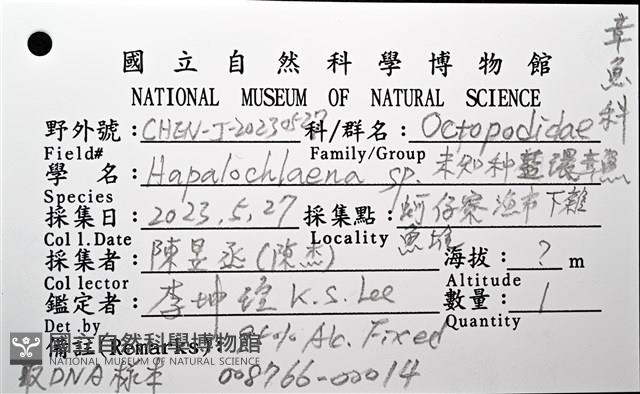 章魚科
國立自然科學博物館
NATIONAL MUSEUM OF NATURAL SCIENCE
野外號：CHEN-J-20230527 科/群名：Octopodidae
Field# Family/Group
學名：Hapalochlaena sp. 未知种藍環章魚
Species
採集日：2023.5.27 採集點：蚵仔寮漁市下雜魚堆
Coll.Date Locality
採集者：陳昱丞(陳杰) 海拔：? m
Collector Altitude
鑑定者：李坤瑄 K.S. Lee 數量：1
Det.by Quantity
備註(Remarks) Al. Fixed
國立自然科學博物館
NATIONAL MUSEUM OF NATURAL SCIENCE
取DNA樣本 008766-00014